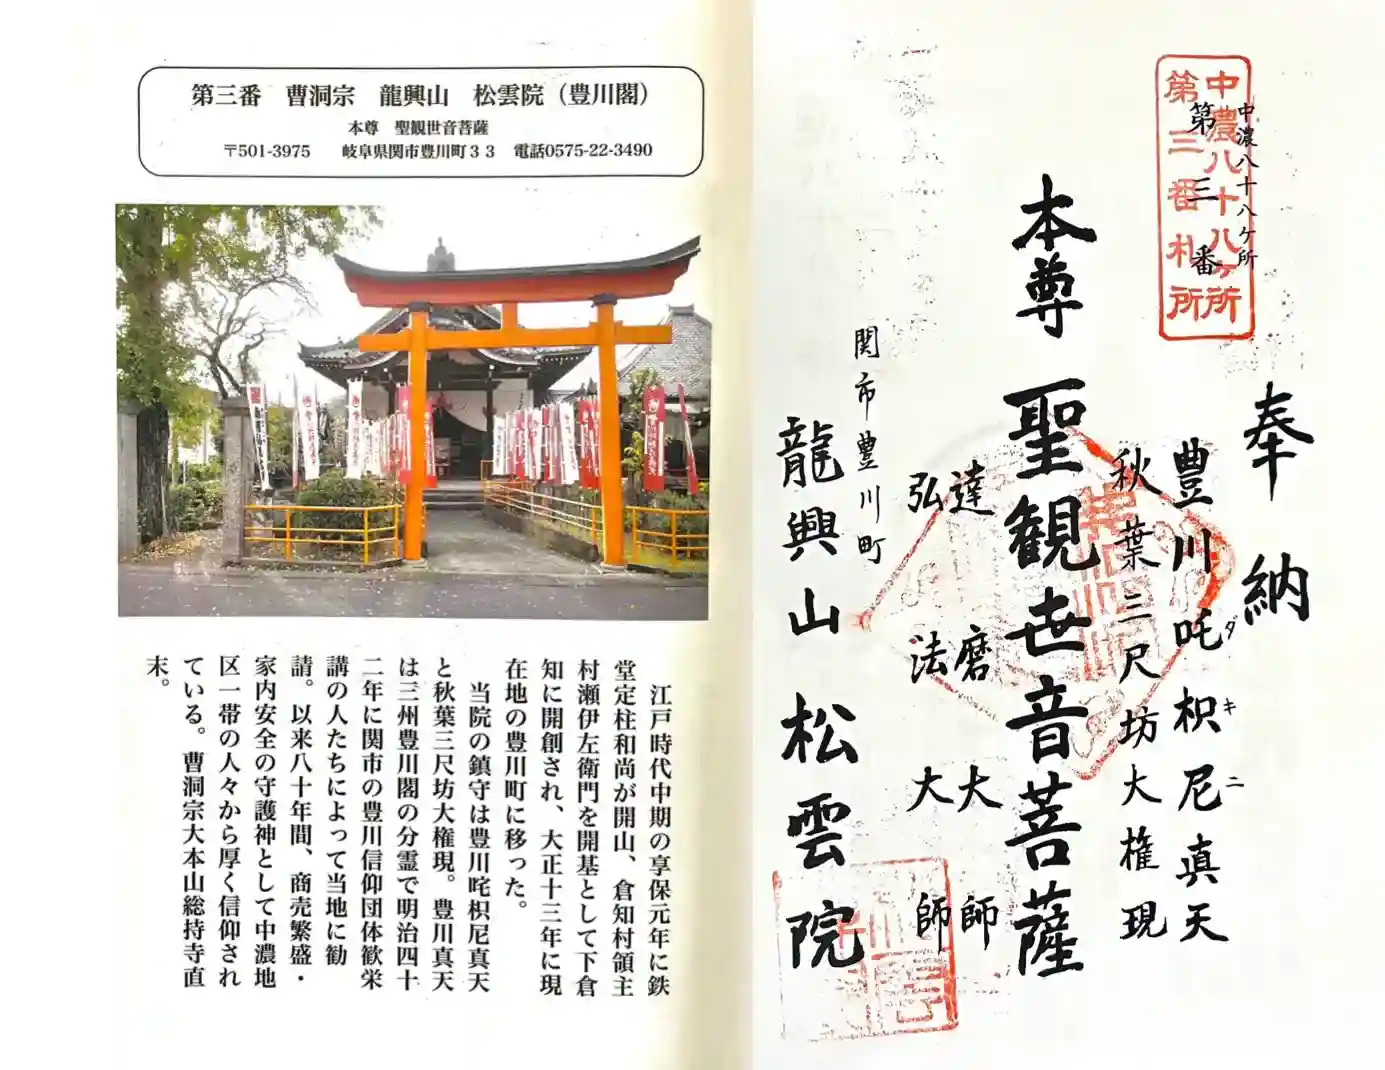 第三番　曹洞宗　龍興山　松雲院（豊川閣）
本尊　聖観世音菩薩
〒501-3975　岐阜県関市豊川町33　電話0575-22-3490
江戸時代中期の享保元年に鉄
堂定柱和尚が開山、倉知村領主
村瀬伊左衛門を開基として下倉
知に開創され、大正十三年に現
在地の豊川町に移った。
当院の鎮守は豊川咤枳尼真天
と秋葉三尺坊大権現。豊川真天
は三州豊川閣の分霊で明治四十
二年に関市の豊川信仰団体歓栄
講の人たちによって当地に勧
請。以来八十年間、商売繁盛・
家内安全の守護神として中濃地
区一帯の人々から厚く信仰され
ている。曹洞宗大本山総持寺直
末。
奉納
中濃八十八ヶ所
第三番
中濃八十八ヶ所
第三番札所
豊川吒枳尼真天
ダキニ
秋葉三尺坊大権現
本尊聖観世音菩薩
達磨大師
弘法大師
関市豊川町
龍興山松雲院